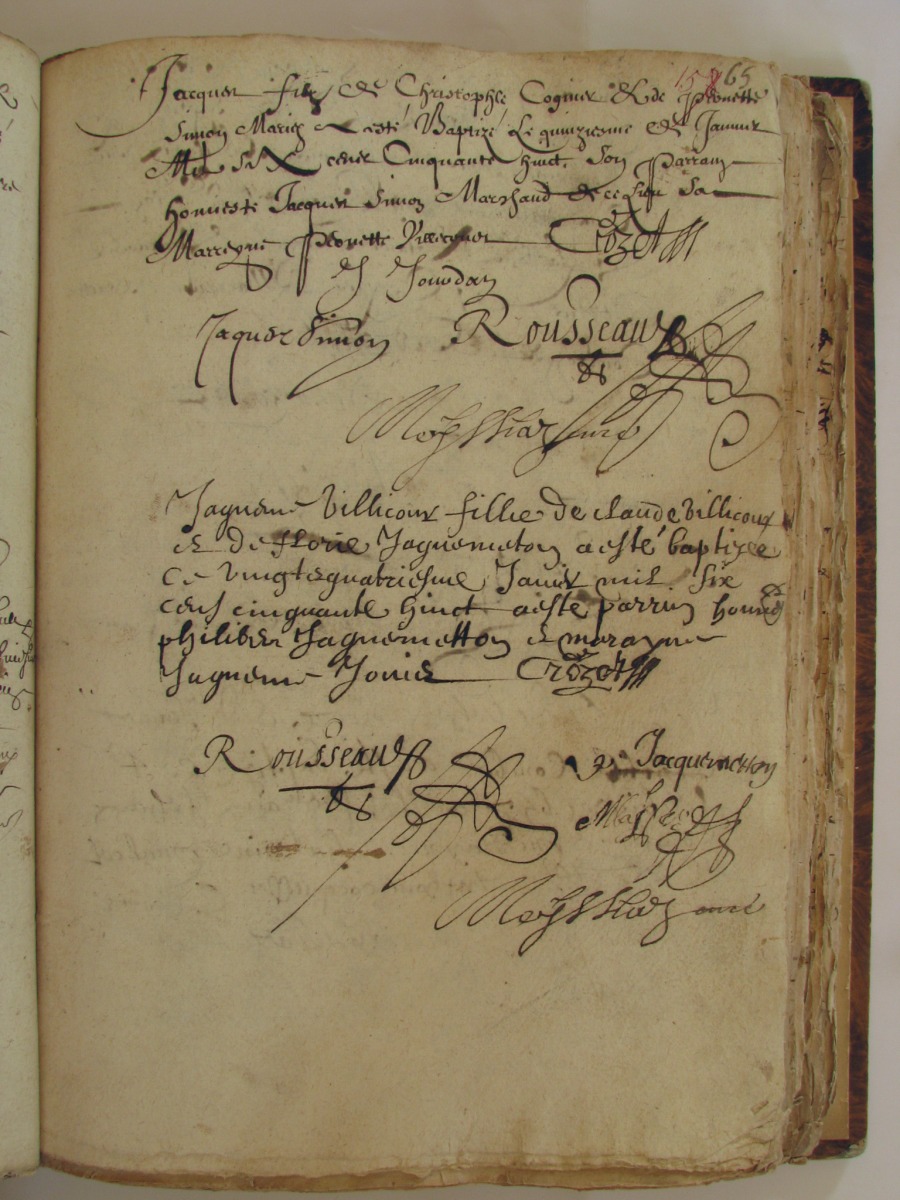 65
Jacques filz de Christophle Cognier & de Peronette
Simon Mariez a esté Baptizé Le quinziesme de Janvier
Mil six cens Cinquante huict. Son Parrain
honneste Jacques Simon Marchand de ce lieu Sa
Marreyne Peronette Crozet
J Jourdan
Jaques Simon Rousseau
Jaqueme Villicour fillie de claude Villicour
et de florie Jaquemeton a esté baptizee
ce vingtequatriesme Janvier mil six
cens cinquante huict a esté parrin honneste
philibert Jaquemetton et marrayne
Jaqueme Jovie Crozet
Rousseau
Jacquemetton